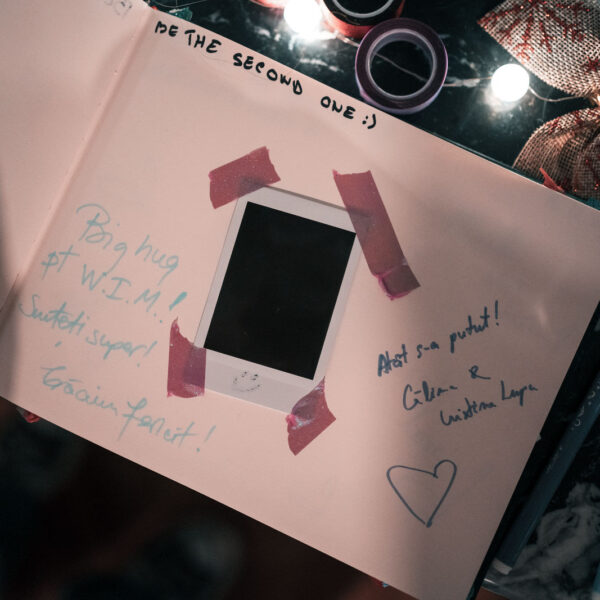 BE THE SECOND ONE :)
Big hug
pt W.I.M.!
Sunteti super!
Crăciun fericit!
Atât s-a putut!
&
Lupu